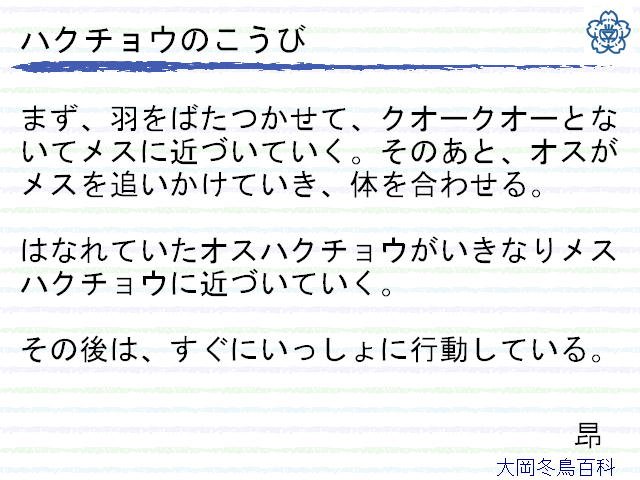 ハクチョウのこうび
まず、羽をばたつかせて、クオークオーとな
いてメスに近づいていく。そのあと、オスが
メスを追いかけていき、体を合わせる。
はなれていたオスハクチョウがいきなりメス
ハクチョウに近づいていく。
その後は、すぐにいっしょに行動している。
昂
大岡冬鳥百科